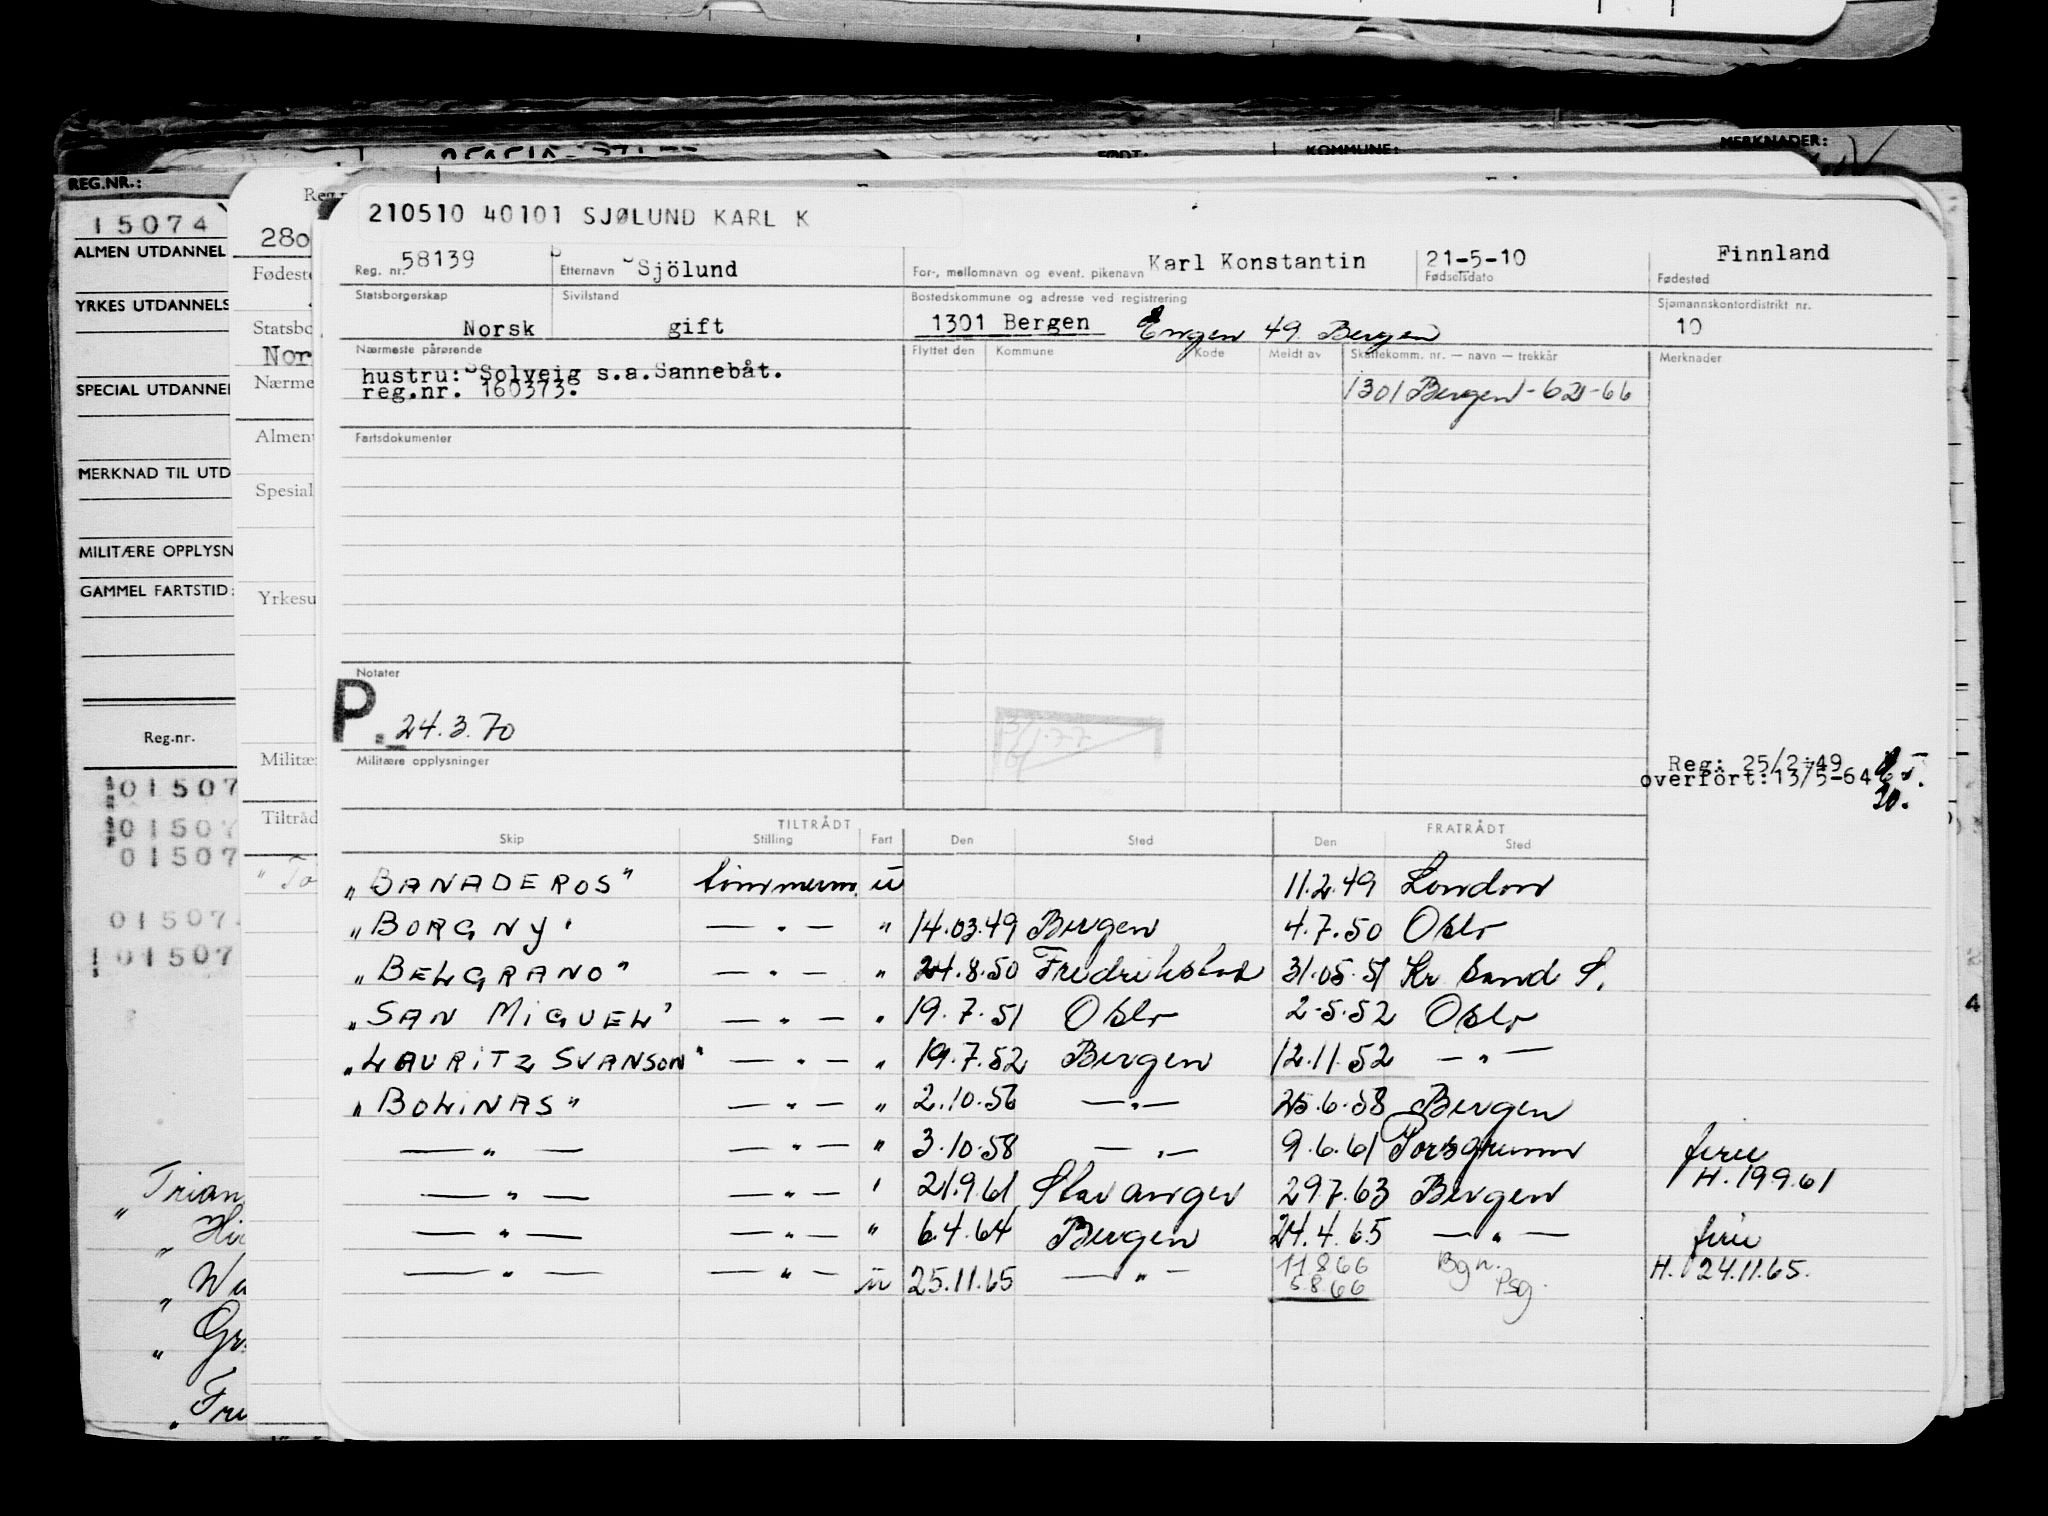 REG.NR.:
FØDT:
KOMMUNE:
MERKNADER:
15074
ALMEN UTDANNEL
YRKES UTDANNELS
SPECIAL UTDANNEL
MERKNAD TIL UTD
MILITÆRE OPPLYSN
GAMMEL FARTSTID:
Reg.nr.
01507
01507
01507
01507
01507
280
Fødeste
Statsbo
Nor
Nærme
Almen
Spesial
Yrkesu
Militæ
Tiltråd
210510 40101 SJØLUND KARL K
Reg. nr. 58139 Etternavn Sjölund For-, mellomnavn og event. pikenavn Karl Konstantin 21-5-10 Fødselsdato Finnland Fødested
Statsborgerskap Sivilstand Bostedskommune og adresse ved registrering Sjømannskontordistrikt nr.
Norsk gift 1301 Bergen Engen 49 Bergen 10
Nærmeste pårørende Flyttet den Kommune Kode Meldt av Skattekomm. nr. — navn — trekkår Merknader
hustru: Solveig s.a.Sannebåt.
reg.nr. 160373.
1301 Bergen - 621-66
Fartsdokumenter
Notater
P. 24.3.70
Militære opplysninger
Reg: 25/2-49
overført:13/5-64
TILTRÅDT FRATRÅDT
Skip Stilling Fart Den Sted Den Sted
"BANADEROS" tömmerm. u 11.2.49 London
"BORGNY" — " — " 14.03.49 Bergen 4.7.50 Oslo
"BELGRANO" — " — " 24.8.50 Fredrikstad 31.05.51 Kr sand S.
"SAN MIGUEL" — " — " 19.7.51 Oslo 2-5.52 Oslo
"LAURITZ SVANSON" — " — " 19.7.52 Bergen 12.11.52 — " —
"BOLINAS" — " — " 2.10.56 — " — 25.6.58 Bergen
— " — — " — " 3.10.58 — " — 9.6.61 Porsgrunn ferie
H. 19961
— " — — " — " 21.9.61 Stavanger 29.7.63 Bergen
— " — — " — " 6.4.64 Bergen 24.4.65 — " — ferie
H. 24.11.65.
— " — — " — u 25.11.65 — " — 11866 Bgn.
5.8.66 Psg.